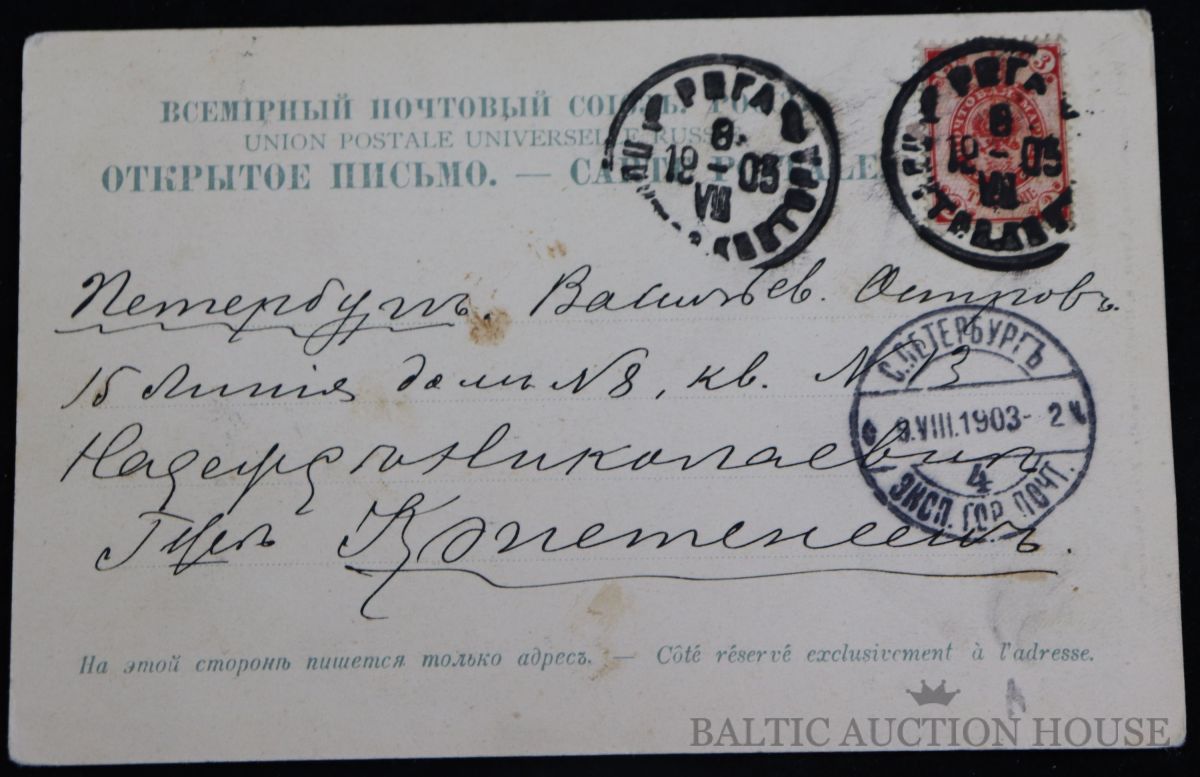 ВСЕМІРНЫЙ ПОЧТОВЫЙ СОЮЗЪ. РОССІЯ
UNION POSTALE UNIVERSELLE. RUSSIE
ОТКРЫТОЕ ПИСЬМО. — CARTE POSTALE
РИГА
8
19 - 03
VIII
РИГА
8
19 - 03
VIII
3
Петербургъ. Васильев. Островъ.
15 Линія домъ № 8, кв. № 13
Николаевнѣ
С.ПЕТЕРБУРГЪ
9.VIII.1903 - 2
4
ЭКСП. ГОР. ПОЧТ.
На этой сторонѣ пишется только адресъ. — Côté réservé exclusivement à l'adresse.
BALTIC AUCTION HOUSE